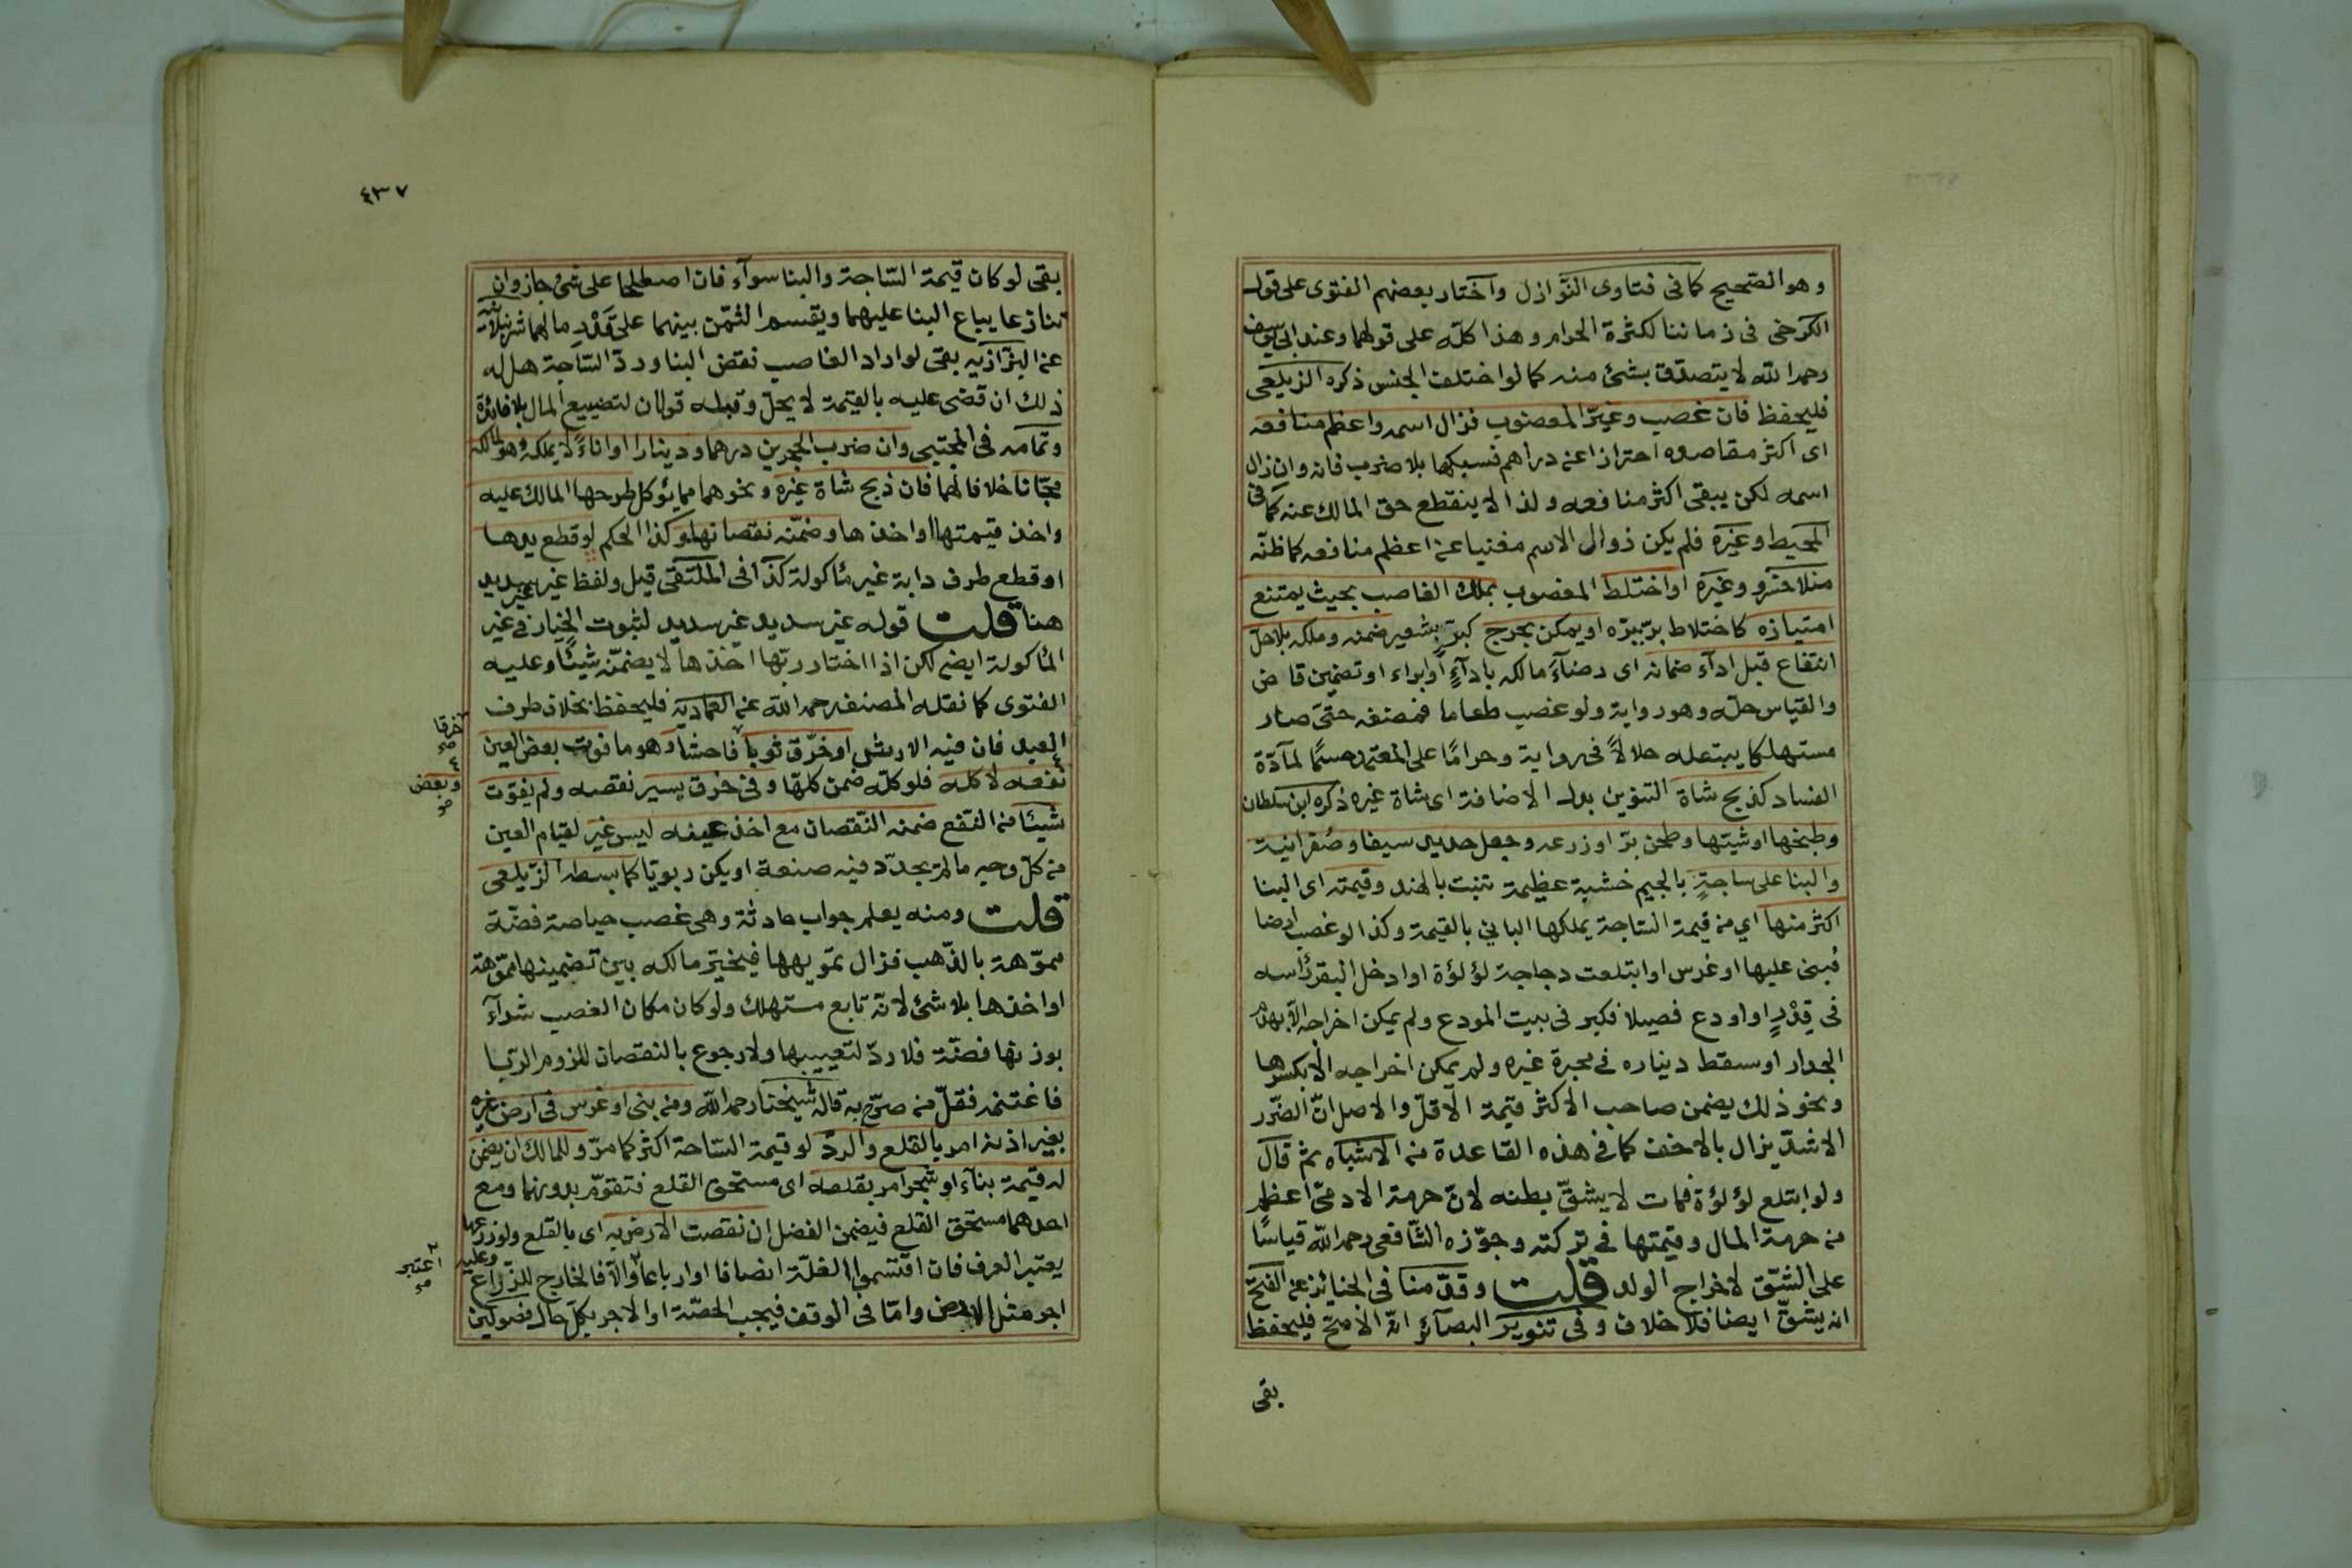 وهو الصّحيح كما في فتاوى النّوازل واختار بعضهم الفتوى على قول
الكرخى فى زماننا لكثرة الحرام وهذا كلّه على قولهما وعند ابى يوسف
رحمه الله لا يتصدّق بشئ منه كما لو اختلف الجنس ذكره الزيلعى
فليحفظ فان غصب وغيّر المغصوب فزال اسمه واعظم منافعه
اى اكثر مقاصده احترازا عن دراهم فسبكها بلا ضرب فانه وان زال
اسمه لكن يبقى اكثر منافعه ولذا لا ينقطع حق المالك عنه كما فى
المحيط وغيره فلم يكن زوال الاسم مغنيا عن اعظم منافعه كما ظنّه
منلا خسرو وغيره او اختلط المغصوب بملك الغاصب بحيث يمتنع
امتيازه كاختلاط برّ ببرّه او يمكن بحرج كبرّ بشعير ضمنه وملكه بلا حلّ
انتفاع قبل ادآء ضمانه اى رضآء مالكه بادآءٍ او ابراء او تضمين قاض
والقياس حلّه وهو رواية ولو غصب طعاما فمضغه حتى صار
مستهلكا يبتعله حلالاً فى رواية وحرامًا على المعتمد حسمًا لمآدّة
الفساد كذبح شاة التنوين بدل الاضافة اى شاة غيره ذكره ابن سلطان
وطبخها او شيتها وطحن برّ او زرعه وجعل حديد سيفا وصُفر انية
والبنا على ساجةٍ بالجيم خشبة عظيمة تنبت بالهند وقيمته اى البنا
اكثر منها اي من قيمة السّاجة يملكها الباني بالقيمة وكذا لو غصب ارضا
فبنى عليها او غرس او ابتلعت دجاجة لؤلؤة او ادخل البقر رأسه
فى قِدْرٍ او اودع فصيلا فكبر فى بيت المودع ولم يمكن اخراجه الّا بهدم
الجدار او سقط ديناره في محبرة غيره ولم يمكن اخراجه الّا بكسرها
ونحو ذلك يضمن صاحب الاكثر قيمة الاقلّ والاصل انّ الضّرر
الاشدّ يزال بالاخف كما فى هذه القاعدة من الاشباه ثم قال
ولو ابتلع لؤلؤة فمات لا يشقّ بطنه لانّ حرمة الادمىّ اعظم
من حرمة المال وقيمتها في تركته وجوّزه الشّافعى رحمه الله قياسًا
على الشّق لاخراج الولد قلت وقدّمنا فى الجنائز عن الفتح
انه يشقّ ايضا فلا خلاف وفى تنوير البصآئر انّه الاصحّ فليحفظ
بقى
٤٣٧
بقى لو كان قيمة السّاجة والبنا سوآء فان اصطلحا على شئ جاز وان
تنازعا يباع البنا عليهما ويقسم الثمّن بينهما على قَدْرِ مالهما شرنبلالية
عن البزّازيه بقى لو اراد الغاصب نقض البنا وردّ السّاجة هل له
ذلك ان قضى عليه بالقيمة لا يحلّ وقبله قولان لتضييع المال بلا فائدة
وتمامه فى المجتبى وان ضرب الحجرين درهما ودينارا او اناءً لا يملكه وهو لمالكه
مجّانا خلافا لهما فان ذبح شاة غيره ونحوهما مما يؤكل طرحها المالك عليه
واخذ قيمتها او اخذها وضمّنه نقصانها وكذا الحكم لو قطع يدها
او قطع طرف دابة غير مأكولة كذا فى الملتقى قيل ولفظ غير غير سديد
هنا قلت قوله غير سديد غير سديد لثبوت الخيار في غير
المأكولة ايضا لكن اذا اختار ربّها اخذها لا يضمّنه شيئًا وعليه
الفتوى كما نقله المصنف رحمه الله عن العمادية فليحفظ بخلاف طرف
العبد فان فيه الارش او خرّق ثوبا فاحشا وهو ما فوّت بعض العين
خرقا صح
نفعه لا كله فلو كلّه ضمن كلّها وفى خرق يسير نقصه ولم يفوّت
وبعض صح
شيئًا من النّفع ضمنه النّقصان مع اخذ عينه ليس غير لقيام العين
من كلّ وجه ما لم يجدّد فيه صنعة او يكن ربويّا كما بسطه الزّيلعى
قلت ومنه يعلم جواب حادثة وهى غصب حياصة فضّة
مموّهة بالذّهب فزال تمويهها فيخيّر مالكه بين تضمينها مموّهة
او اخذها بلا شئ لانّه تابع مستهلك ولو كان مكان الغصب شرآء
بوزنها فضّة فلا ردّ لتعيبها ولا رجوع بالنقصان للزوم الرّبا
فاغتنمه فقلّ من صرّح به قاله شيخنا رحمه الله ومن بنى او غرس فى ارض غيره
بغير اذنه امر بالقلع والردّ لو قيمة السّاحة اكثر كما مرّ وللمالك ان يضمن
له قيمة بنآء او شجر امر بقلعه اى مستحق القلع فتقوّم بدونهما ومع
احدهما مستحق القلع فيضمن الفضل ان نقصت الارض به اى بالقلع ولو زرعها
يعتبر العرف فان اقتسموا الغلّة انصافا او ارباعا والّا فالخارج للزّراع وعليه
اعتبر صح
اجر مثل الارض وامّا فى الوقف فيجب الحصّة او الاجر بكلّ حال فصولين